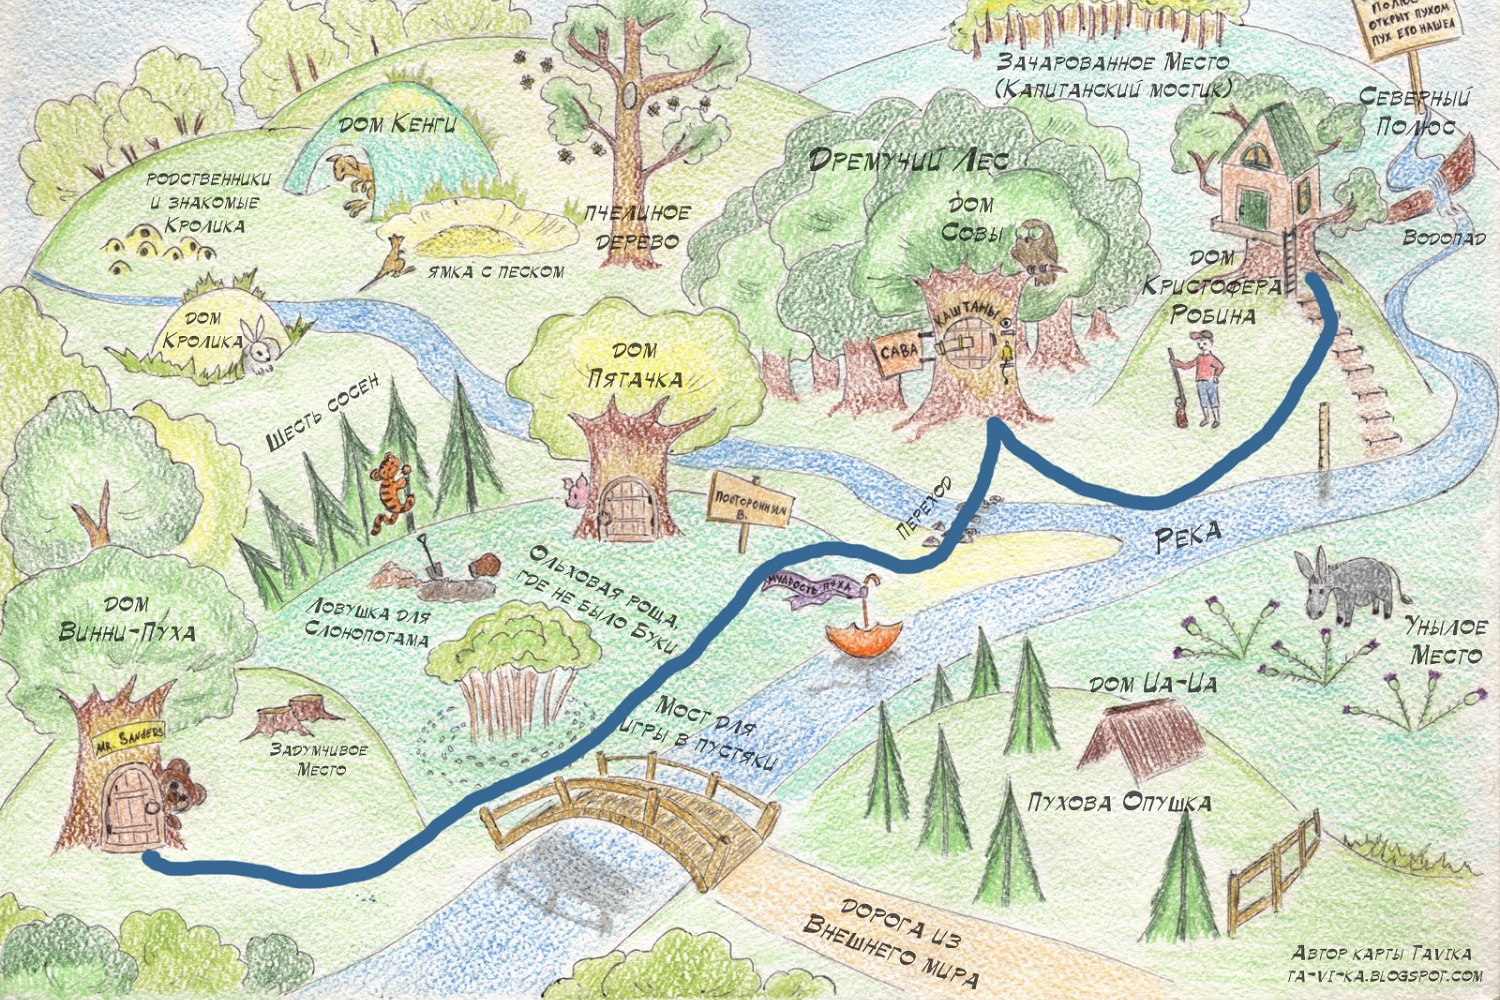 ПОЛЮС
ОТКРЫТ ПУХОМ
ПУХ ЕГО НАШЕЛ
Зачарованное Место
(Капитанский мостик)
Северный
Полюс
дом Кенги
Дремучий Лес
родственники
и знакомые
Кролика
дом
Совы
пчелиное
дерево
Водопад
ямка с песком
дом
Кристофера
Робина
КАШТАНЫ
САВА
дом
Кролика
дом
Пятачка
Шесть сосен
ПОСТОРОННИМ
В.
Переход
Река
Ольховая роща,
где не было Буки
МУДРОСТЬ ПУХА
Ловушка для
Слонопотама
дом
Винни-Пуха
Унылое
Место
дом Иа-Иа
MR. SANDERS
Задумчивое
Место
Мост для
игры в пустяки
Пухова Опушка
дорога из
Внешнего мира
Автор карты Tavika
ta-vi-ka.blogspot.com